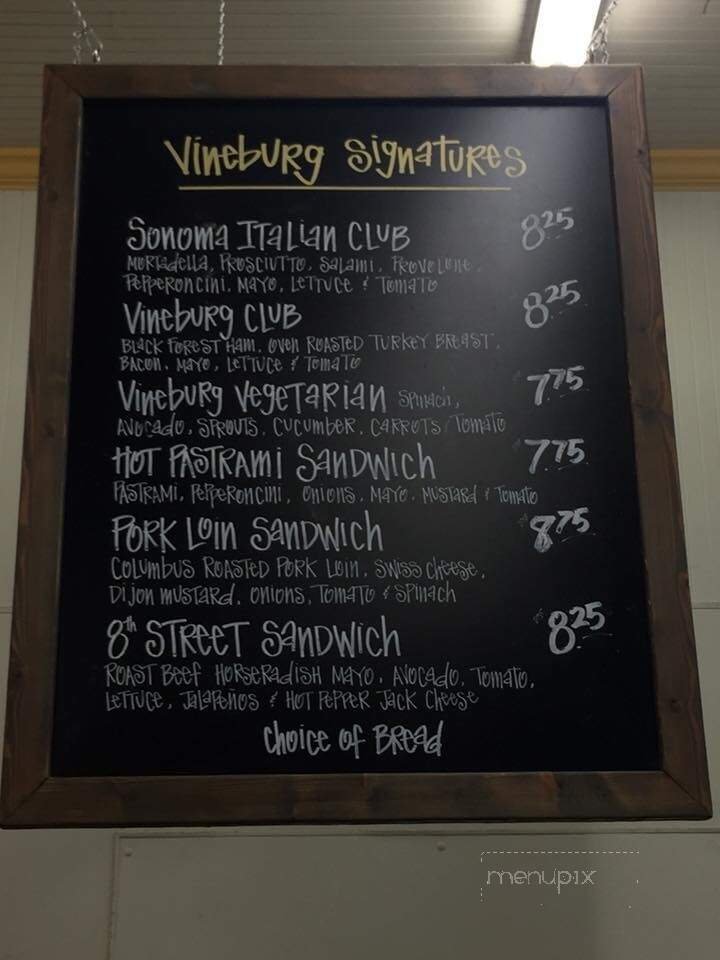 Vineburg Signatures
Sonoma Italian Club 8.25
Mortadella, Prosciutto, Salami, Provolone,
Pepperoncini, Mayo, Lettuce & Tomato
Vineburg Club 8.25
Black Forest Ham, Oven Roasted Turkey Breast,
Bacon, Mayo, Lettuce & Tomato
Vineburg Vegetarian Spinach, 7.75
Avocado, Sprouts, Cucumber, Carrots, Tomato
Hot Pastrami Sandwich 7.75
Pastrami, Pepperoncini, Onions, Mayo, Mustard & Tomato
Pork Loin Sandwich 8.75
Columbus Roasted Pork Loin, Swiss Cheese,
Dijon Mustard, Onions, Tomato & Spinach
8th Street Sandwich 8.25
Roast Beef Horseradish Mayo, Avocado, Tomato,
Lettuce, Jalapeños & Hot Pepper Jack Cheese
Choice of Bread
menupix